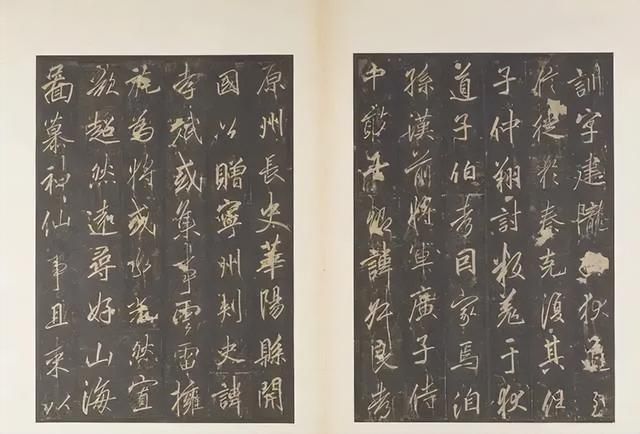 訓字建隴狄道
於秦克復其任
子仲翔討叛羌于狄
道子伯考因家焉洎
孫漢前將軍廣子侍
中敢諱良考
原州長史華陽縣開
國公贈寧州刺史諱
孝斌或集事雲雷擁
旄為將或然宣
欲超然遠尋好山海
圖慕神仙事且束以